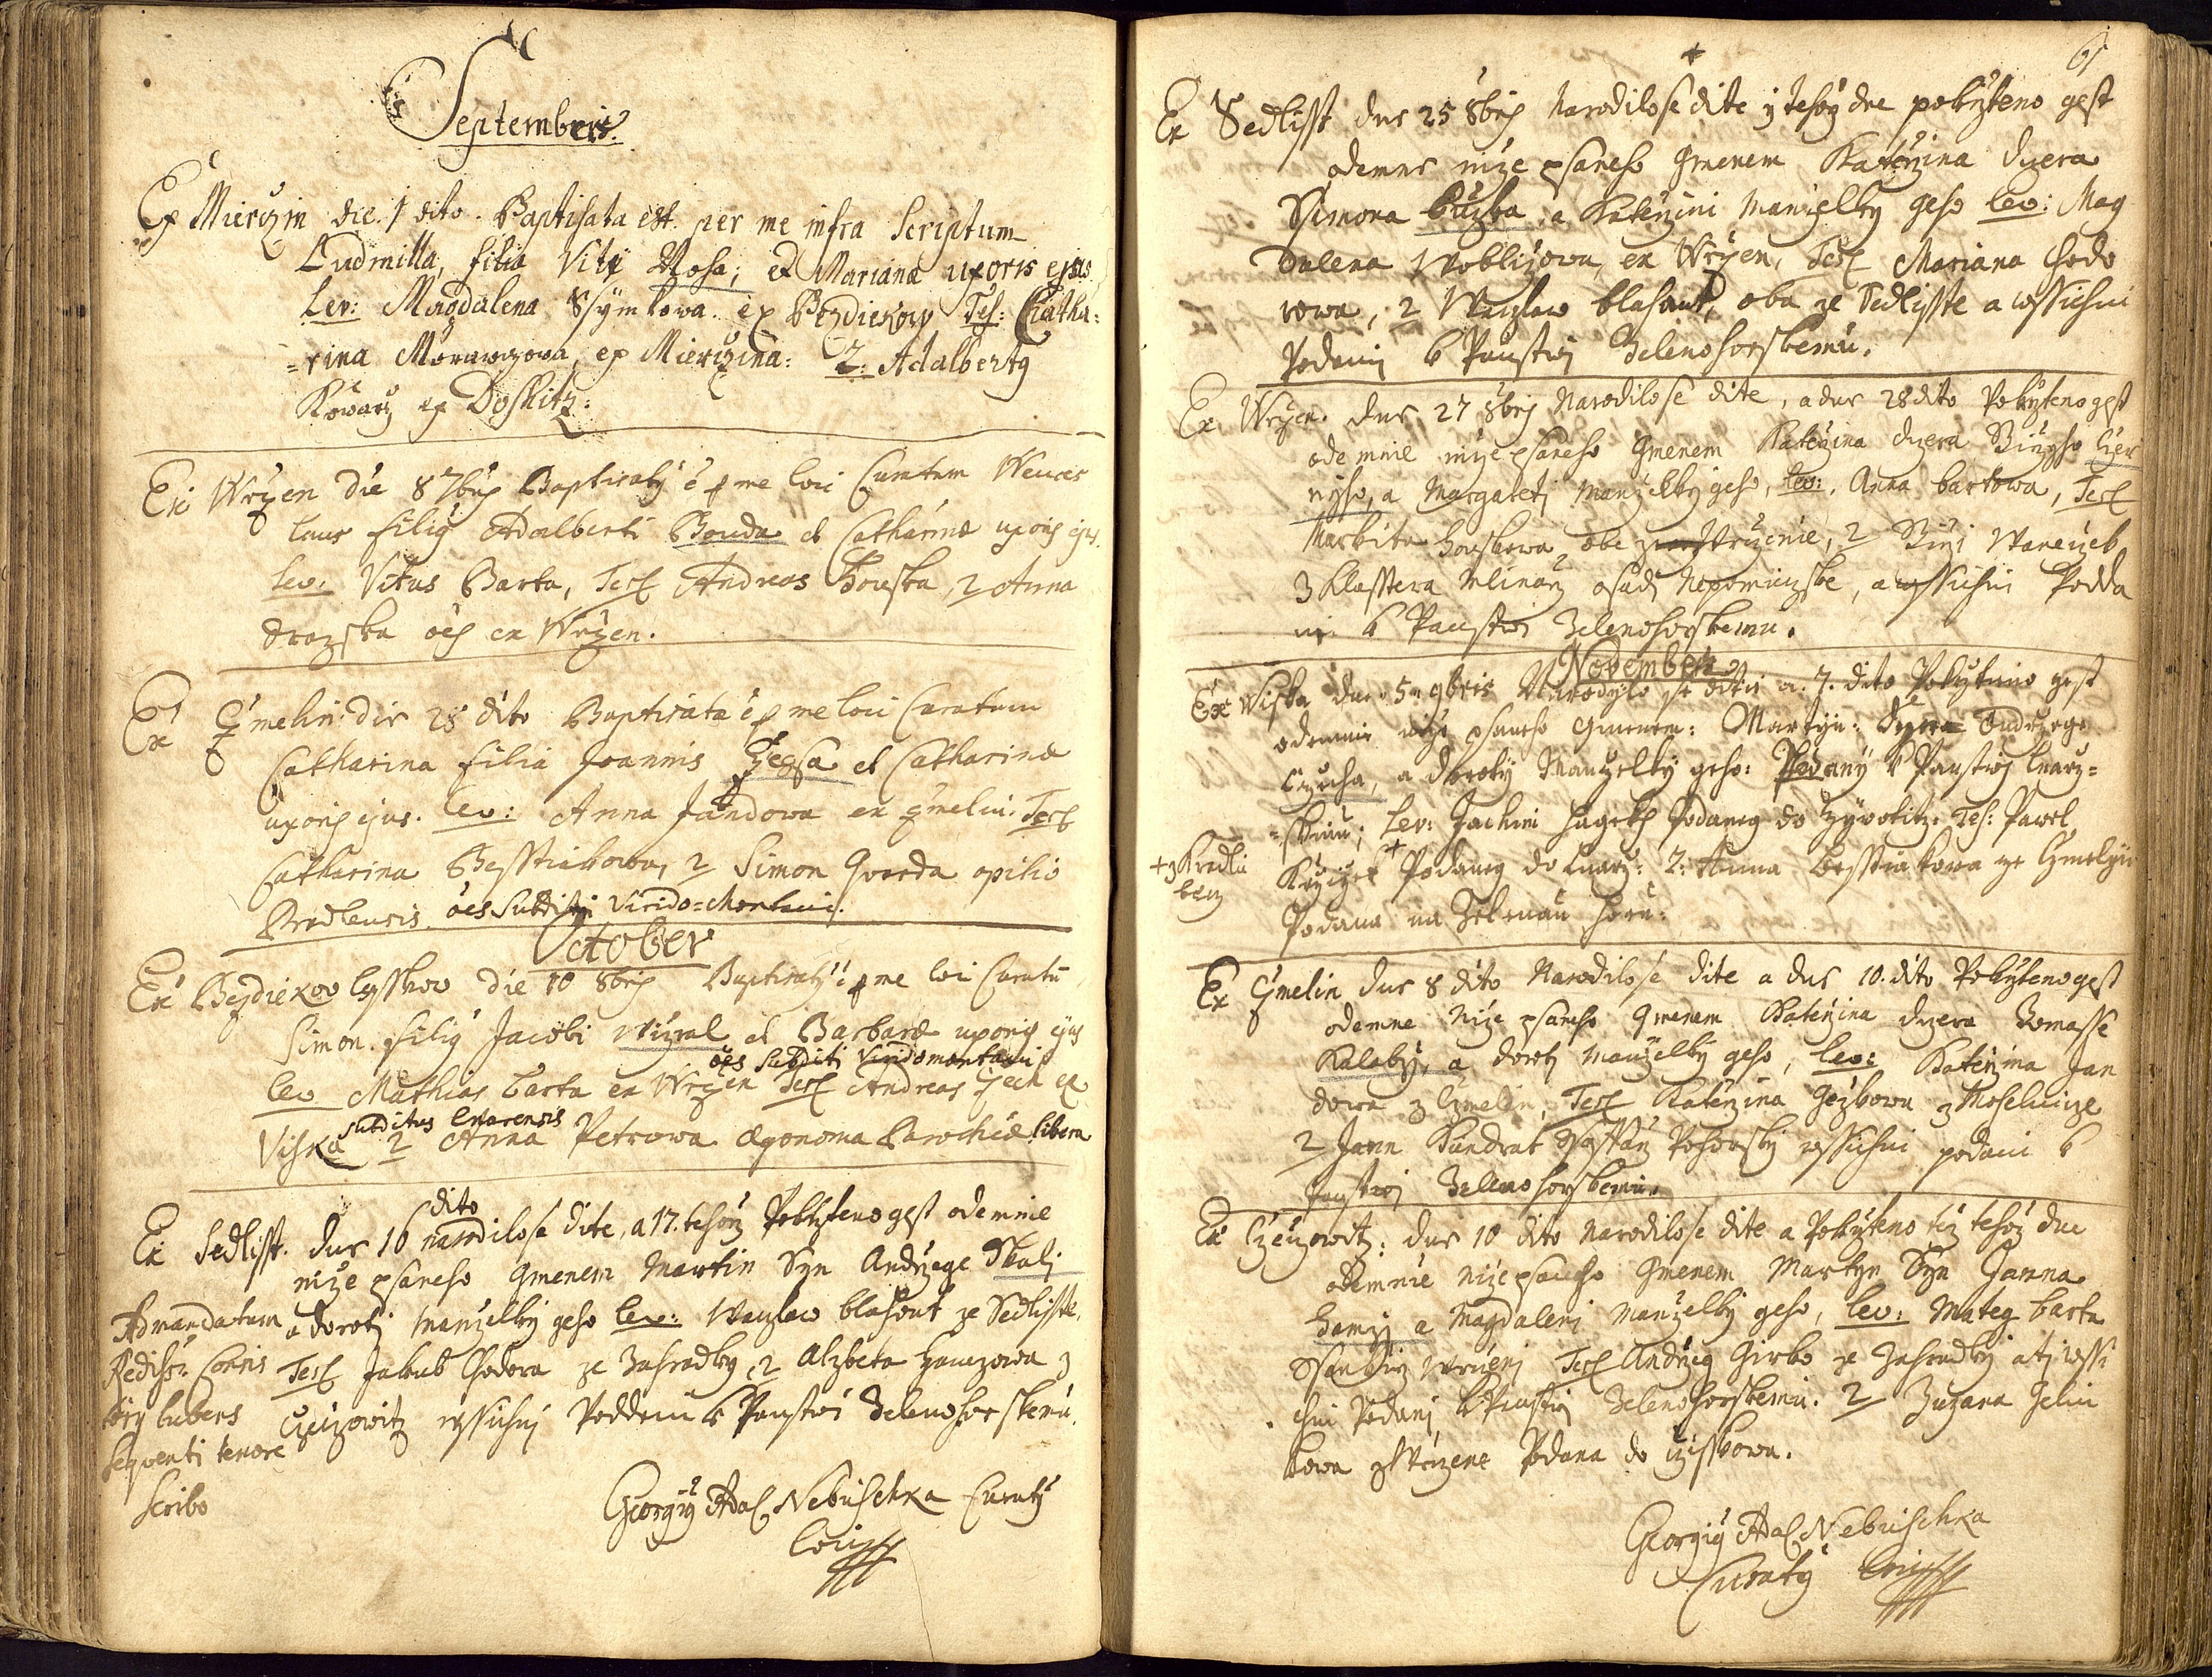 Septembris.
Ex Mierczin die 1 dito. Baptisata est per me infra Scriptum
Ludmilla, filia Viti Nosa; et Mariana uxoris ejus.
Lev: Magdalena Ssymkowa. ex Bezdiekow Tes: Catha:
=rina Morawczowa, ex Mierczina: 2: Adalbertq
Kowarz ex Doshitz:
Ex Wrczen die 8 7bris Baptisatq ē p me loci Curatum Wences
laus filiq Adalberti Bouda et Catharinæ uxoris ejus.
lev: Vitus Barta, Tes Andreas Houska, 2 Anna
Drozska ōes ex Wrczen.
Ex Czmelin: die 28 dito Baptisata ē p me loci Curatum
Catharina filia Joannis et Catharinæ
uxoris ejus. lev: Anna Jandowa ex Czmelin. Tes
Catharina Besstiakowa, 2 Simon Qvorda opilio
Pradlensis. ōes Subditi Virido=Montani.
October
Ex Bezdiekov die 10 8bris Baptisatq ē p me loci Curatū
Simon. filiq Jacobi Wizral et Barbaræ uxoris ejus
ōes Subditi Viridomontani
lev Mathias barta ex Wrczen Tes Andreas Czech ex
subditus lnarensis
Viska 2 Anna Petrowa œconoma Parochiæ libera
dito
Ex Sedlisst. dne 16 narodilose dite, a 17. tehoz Pokrzteno gest odemnie
nize psaneho Gmenem Martin Syn Andrzege Skali
Ad mandatum a doroti manzelky geho lev: Waczlaw blahout ze Sedlisste.
Tes Jakub Chodora ze Zahradky, 2 Alzbeta Hanzowa z
lubens Czeczowitz wssichni Poddani k Panstwi Zelenohorskemu.
seqventi tenore
scribo
Georgiq Adal Nebuschka Curatq
loci
61
Ex Sedlisst dne 25 8bris Narodilose dite y tehoz dne pokrzteno gest
odemne nize psaneho Gmenem Katerzina dczera
Simona a Katerzini Manzelky geho lev: Mag
dalena Woblizowa, ex Wrczen, Tes Mariana Chodo
rowa, 2 Waczlaw blahaut, oba ze Sedlisste a wssichni
Podani k Panstwi Zelenohorskemu.
Ex Wrczen. dne 27 8bris Narodilose dite, a dne 28 dito Pokrzteno gest
odemnie nize psaneho Gmenem Katerzina dczera Girzyho
a Margareti Manzelky geho, lev: Anna bartowa, Tes
Markita houskowa, obe z Wrczenie, 2 Girzi Waneczek
z Klasstera Mlinarz osadi Nepomuczke, a wssichni Podda
ni k Panstwi Zelenohorskemu.
November
Ex Viska dne 5. 9bris Narodylo se ditie a. 7. dito Pokrztieno gest
odemnie nize psaneho Gmenem: Martyn: Ondrzege
Czecha, a doroty Manzelky geho: Podany k Panstwj lnarz=
=skimu; Lev: Jachim Hagek Podaneg do Zywotitz. Tes: Pawel
+ z Pradla Krzizek + Podaneg do Lnarz: 2: Anna Besstiakowa ze Czmelyn
Podana na Zelenau horu:
Ex Czmelin dne 8 dito Narodilose dite a dne 10. dito Pokrzteno gest
odemne Nize psaneho Gmenem Katerzina dczera Tomasse
Kalaby, a doroti Manzelky geho, lev: Katerzina Jan
dowa z Czmelin, Tes Katerzina Gezkowa z Mohelnicze
2 Jann Kundrat Pohorsky wssichni podani k
Panstwi Zelenohorskemu.
Ex Czeczowitz: dne 10 dito Narodilose dite a Pokrzteno tez tehoz dne
odemnie nize psaneho Gmenem Martyn Syn Janna
a Magdaleni Manzelky geho, lev: Mateg barta
Wrczeni Tes Andrzeg Girka ze Zahradky ati wssi
chni Podani k Panstwi Zelenohorskemu. 2 Zuzana Jelin
kowa z Wrczene Podana do
Georgiq Adal Nebuschka
Curatq loci